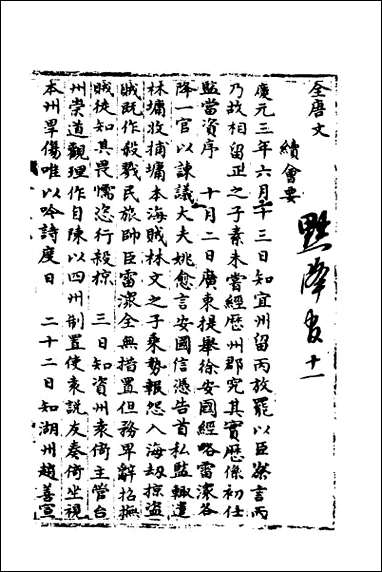 全唐文
續會要
黜降官十一
慶元三年六月十三日知宜州留丙放罷以臣寮言丙
乃故相留正之子素未嘗經歷州郡究其實歷係初任
監當資序　十月二日廣東提舉徐安國經略雷澯各
降一官以諫議大夫姚愈言安國信憑告首私監輙遣
林墉收捕墉本海賊林文之子乘勢報怨入海刼掠盜
賊既作殺戮民旅帥臣雷澯全無措置但務卑辭招撫
賊徒知其畏懦恣行殺掠　三日知資州袁倚主管台
州崇道觀理作自陳以四州制置使袁說友奏倚坐視
本州旱傷唯以吟詩度日　二十二日知湖州趙善宣